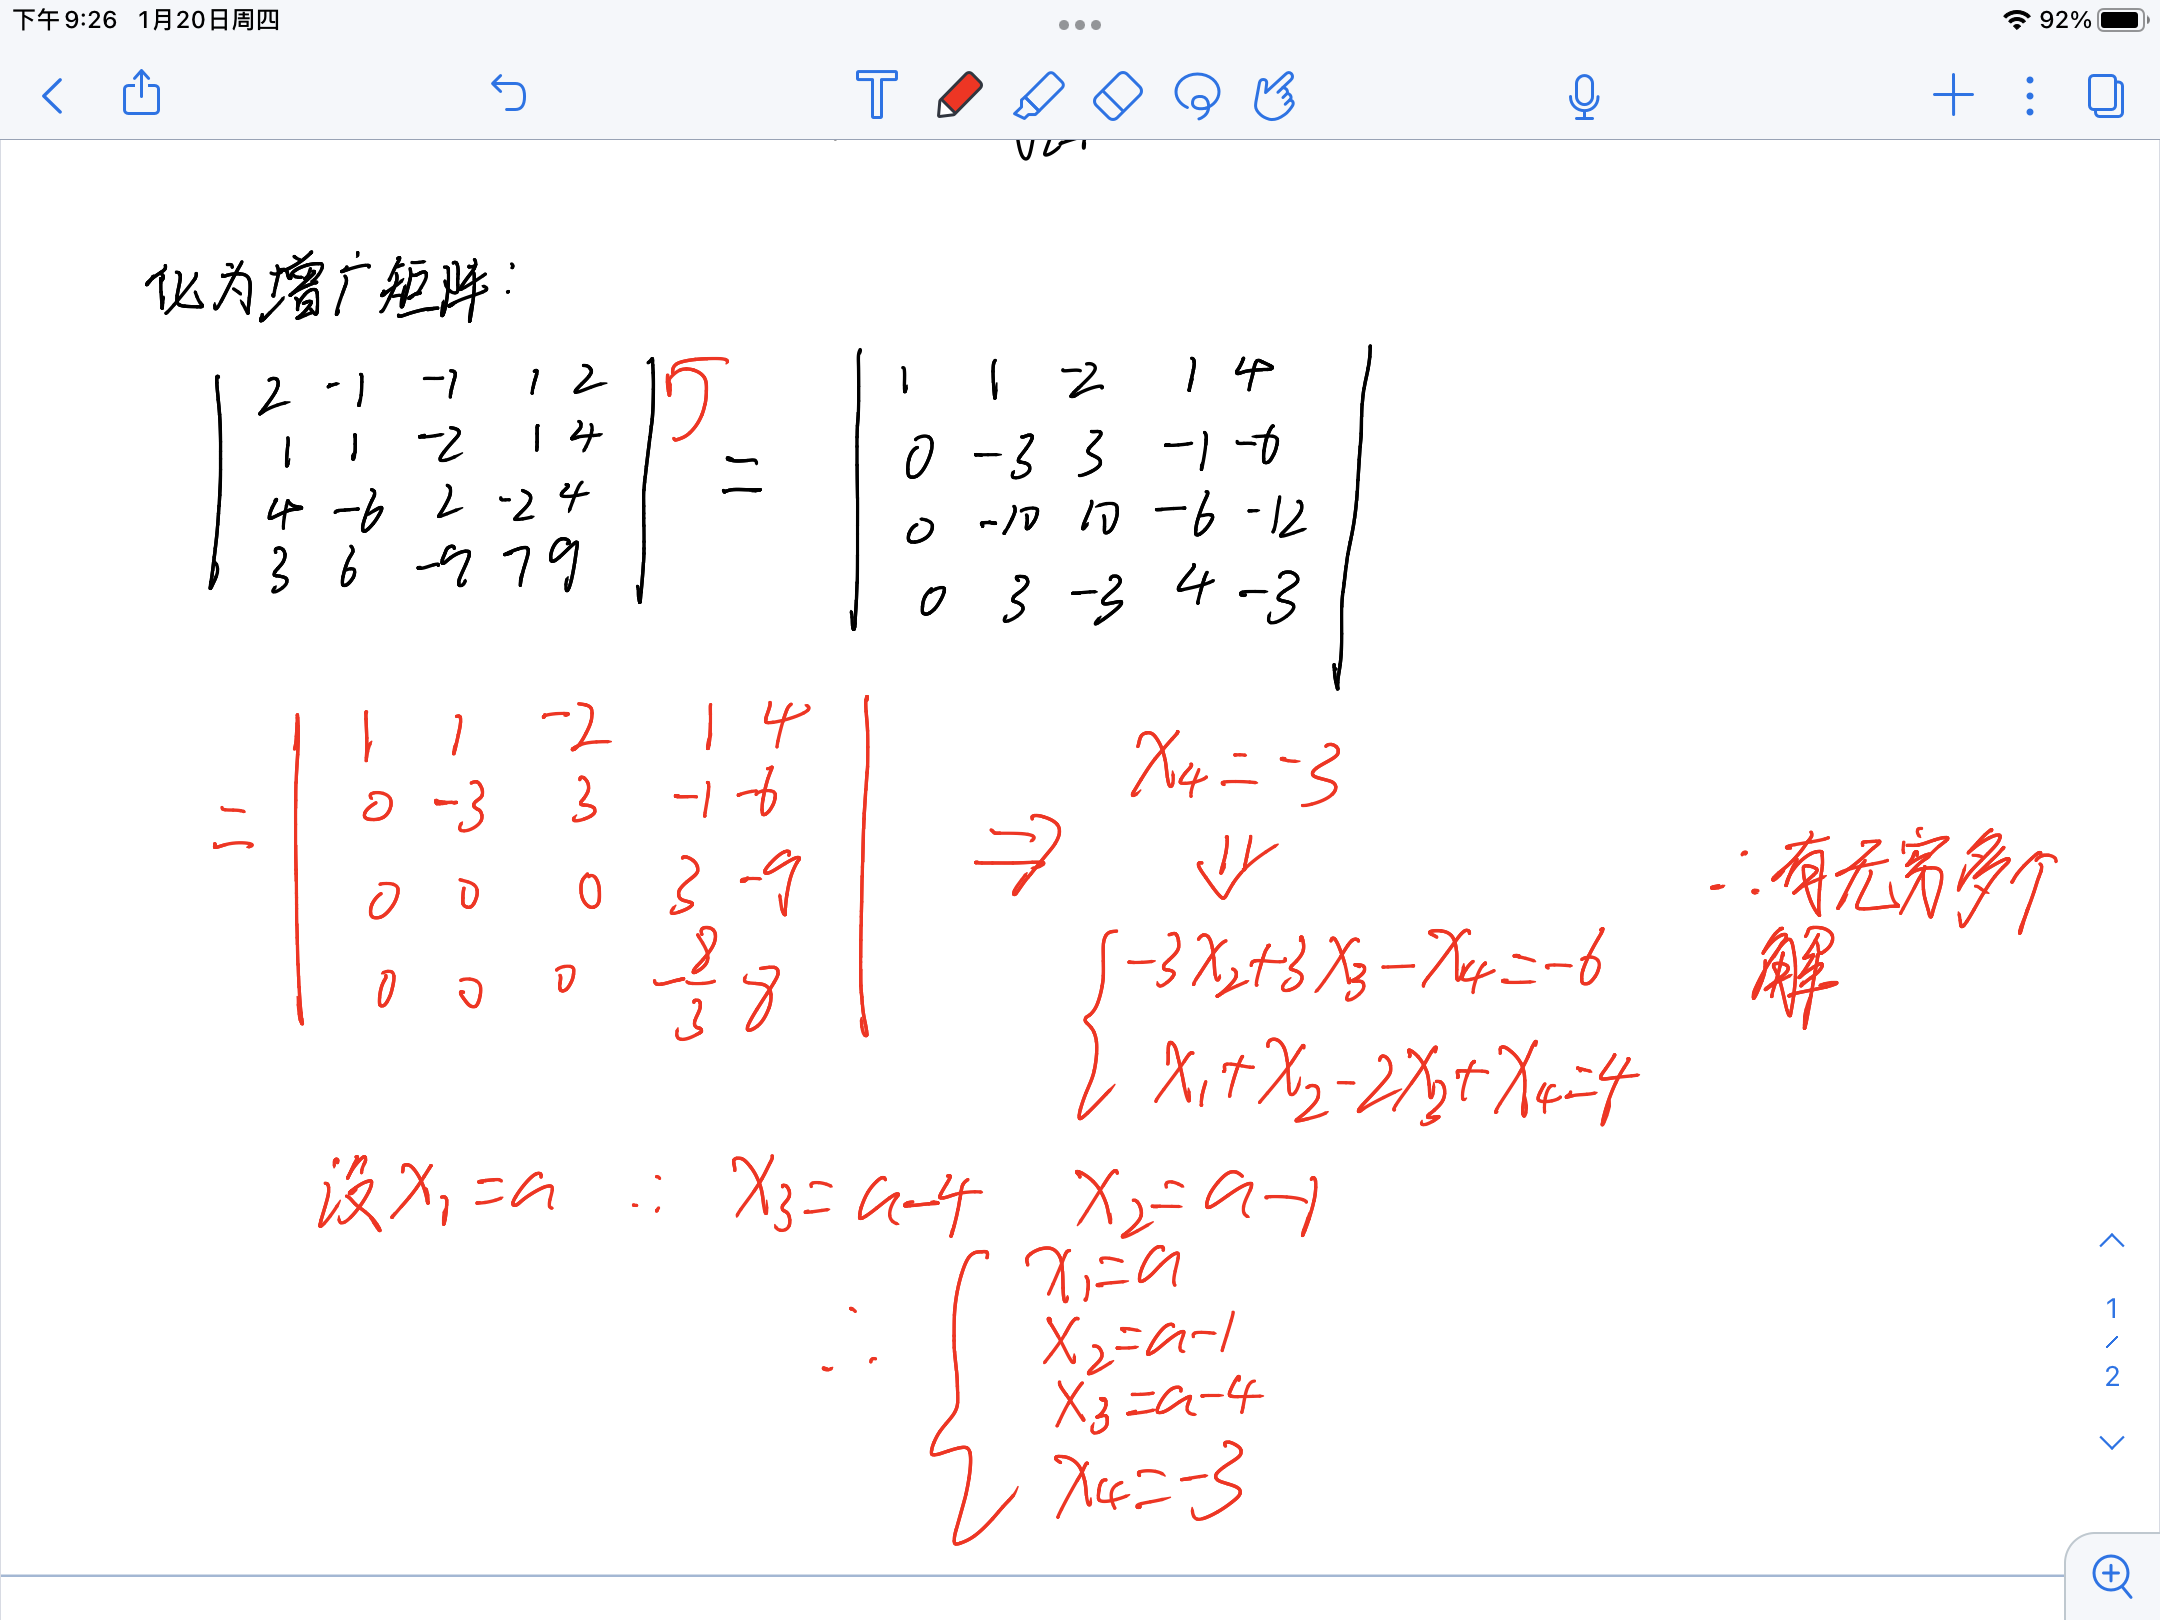 下午9:26 1月20日周四
92%
T
化为增广矩阵:
2 -1 -1 1 2
1 1 -2 1 4
4 -6 2 -2 4
3 6 -9 7 9
=
1 1 -2 1 4
0 -3 3 -1 -6
0 -10 10 -6 -12
0 3 -3 4 -3
=
1 1 -2 1 4
0 -3 3 -1 -6
0 0 0 3 -9
0 0 0 -8/3 8
⇒
x₄=-3
⇓
-3x₂+3x₃-x₄=-6
x₁+x₂-2x₃+x₄=4
∴有无穷多个
解
设x₁=a ∴ x₃=a-4 x₂=a-1
∴
x₁=a
x₂=a-1
x₃=a-4
x₄=-3
1
/
2